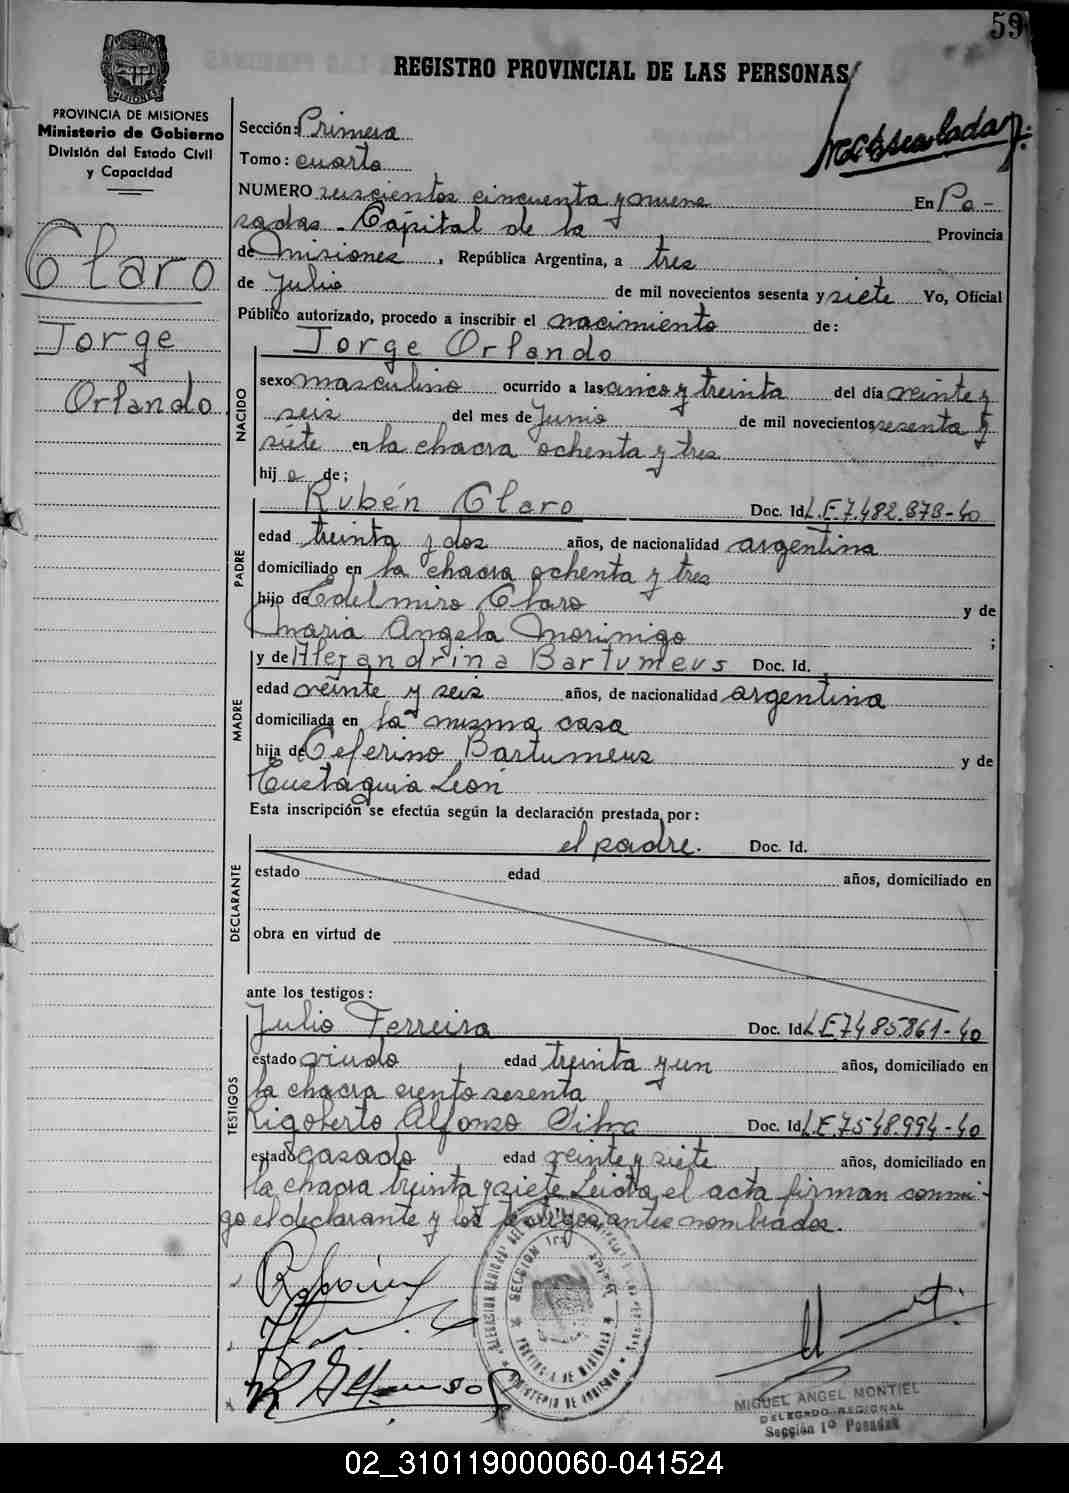 59
REGISTRO PROVINCIAL DE LAS PERSONAS
PROVINCIA DE MISIONES
Ministerio de Gobierno
División del Estado Civil
y Capacidad
Claro
Jorge
Orlando
Sección: Primera
Tomo: cuarto
NUMERO seiscientos cincuenta y nueve En Po-
sadas - Capital de la Provincia
de Misiones, República Argentina, a tres
de Julio de mil novecientos sesenta y siete Yo, Oficial
Público autorizado, procedo a inscribir el nacimiento de:
Jorge Orlando
NACIDO
sexo masculino ocurrido a las cinco y treinta del día veinte y
seis del mes de Junio de mil novecientos sesenta y
siete en la chacra ochenta y tres
hij o de:
Rubén Claro Doc. Id. L.E.7.482.878-40
PADRE
edad treinta y dos años, de nacionalidad argentina
domiciliado en la chacra ochenta y tres
hijo de Edelmiro Claro y de
Maria Angela Morinigo ;
y de Alejandrina Bartumeus Doc. Id.
MADRE
edad veinte y seis años, de nacionalidad argentina
domiciliada en la misma casa
hija de Ceferino Bartumeus y de
Eustaquia León
Esta inscripción se efectúa según la declaración prestada por:
el padre. Doc. Id.
DECLARANTE
estado edad años, domiciliado en
obra en virtud de
ante los testigos:
Julio Ferreira Doc. Id. L.E.7485.861-40
TESTIGOS
estado viudo edad treinta y un años, domiciliado en
la chacra ciento sesenta
Rigoberto Alfonso Silva Doc. Id. L.E.7548.994-40
estado casado edad veinte y siete años, domiciliado en
la chacra treinta y siete Leida el acta firman conmi-
go el declarante y los testigos antes nombrados.
R. Alfonso
PROVINCIA DE MISIONES
MINISTERIO DE GOBIERNO
MIGUEL ANGEL MONTIEL
DELEGADO REGIONAL
Sección 1º Posadas
02_310119000060-041524